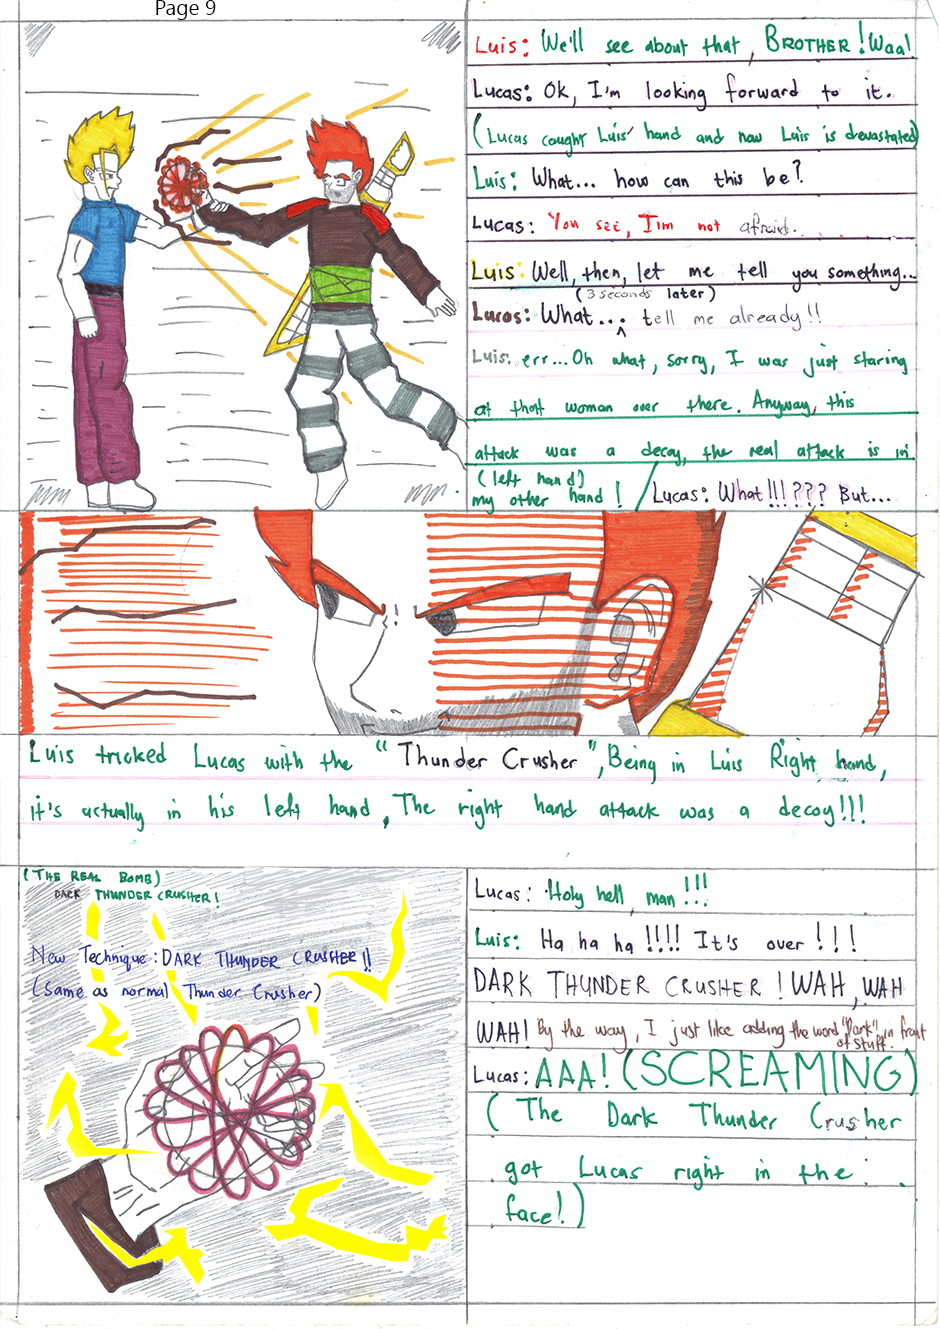 Page 9
Luis: We'll see about that, BROTHER! Waa!
Lucas: Ok, I'm looking forward to it.
(Lucas caught Luis' hand and now Luis is devastated)
Luis: What... how can this be?
Lucas: You see, I'm not afraid.
Luis: Well, then, let me tell you something...
(3 seconds later)
Lucas: What... tell me already!!
Luis: err... Oh what, sorry, I was just staring
at that woman over there. Anyway, this
attack was a decoy, the real attack is in
(left hand)
my other hand! / Lucas: What!!!??? But...
Luis tricked Lucas with the "Thunder Crusher", Being in Luis Right hand,
it's actually in his left hand, The right hand attack was a decoy!!!
(THE REAL BOMB)
DARK THUNDER CRUSHER!
New Technique: DARK THUNDER CRUSHER!!
(Same as normal Thunder Crusher)
Lucas: Holy hell, man!!!
Luis: Ha ha ha!!!! It's over!!!
DARK THUNDER CRUSHER! WAH, WAH
WAH! By the way, I just like adding the word "Dark" in front
of stuff.
Lucas: AAA! (SCREAMING)
(The Dark Thunder Crusher
got Lucas right in the
face!)